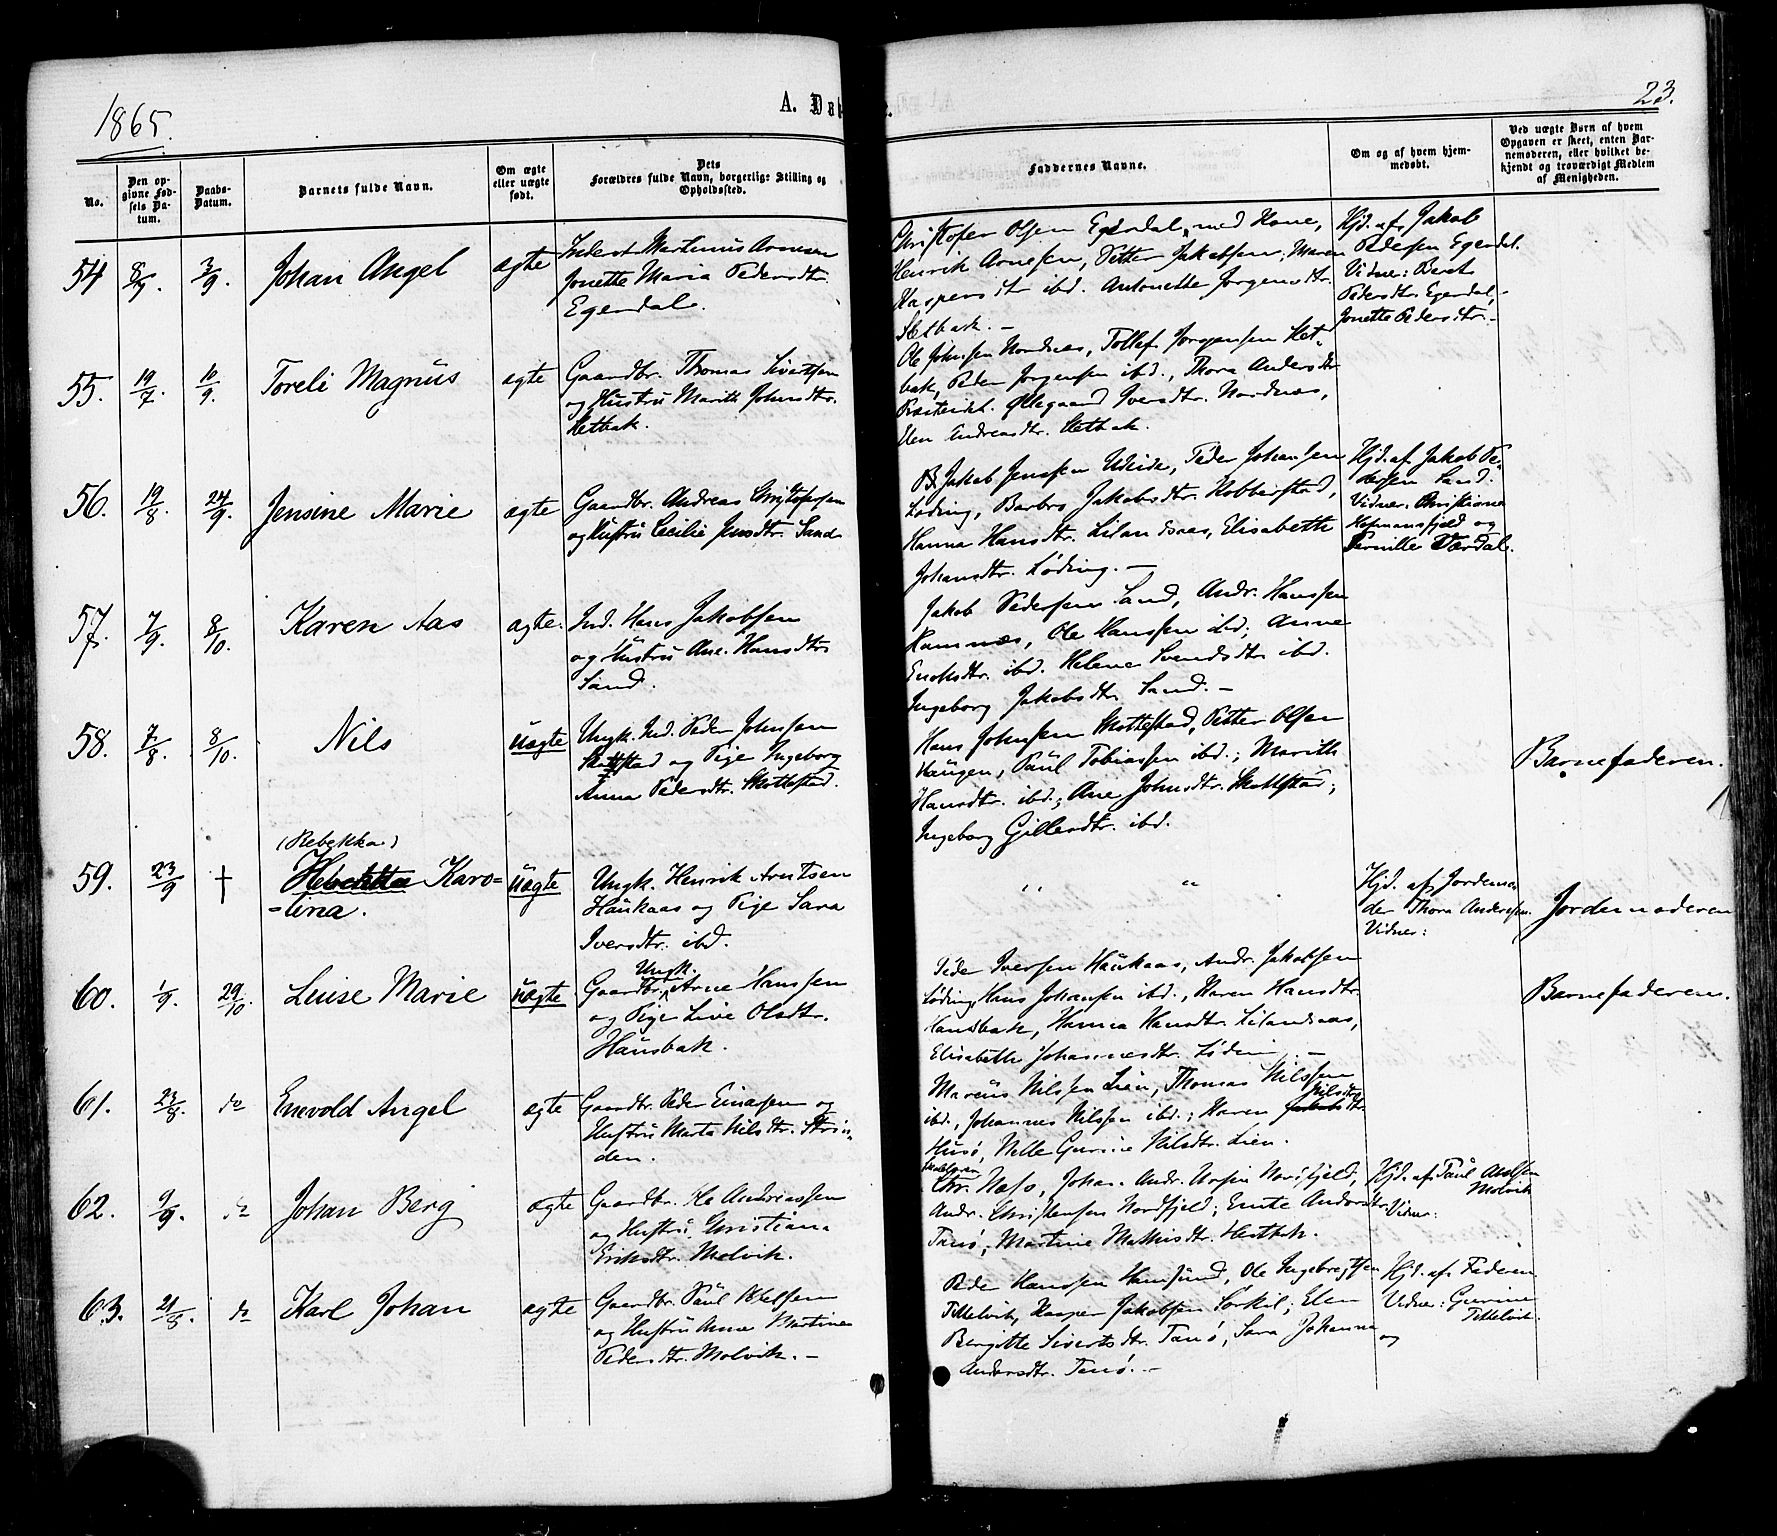 1865.
A. Døb
23.
No.
Den opgivne Fødsels Datum.
Daabs-Datum.
Barnets fulde Navn.
Om ægte eller uægte født.
Dets Forældres fulde Navn, borgerlige Stilling og Opholdssted.
Faddernes Navne.
Om og af hvem hjemmedøbt.
Ved uægte Børn af hvem Opgaven er skeet, enten Barnemoderen, eller hvilket bekjendt og troværdigt Medlem af Menigheden.
54 3/9. Johan Angel ægte
Martinus Arnesen
Jonette Maria Pedersdtr.
Egerdal.
Christofer Olsen Egerdal, med Kone,
Henrik Arnesen, Petter Jakobsen, Maren
Kaspersdtr ibd. Antonette Jørgensdtr.
Hetbak. –
Hjd. af Jakob
Pedersen Egerdal.
Vidner: Berit
Pedersdtr. Egerdal,
Jonette Pedersdtr. –
55. 19/7. 10/9. Toreli Magnus ægte
Gaardbr. Thomas Sivertsen
og Hustru Marith Johnsdtr.
Hetbak.
Ole Johnsen Nordnæs, Tollef Jørgensen Het-
bak, Peder Jørgensen ibd., Thora Andersdtr
Præsteidet. Ollegaard Iversdtr. Nordnæs,
Elen Andreasdtr. Hetbak.
56. 19/8. 24/9. Jensine Marie ægte
Gaardbr. Andreas Christofersen
og Hustru Cecilie Jensdtr. Sand
Jakob Jenssen Udeide, Peder Johansen
Løding, Barbro Jakobsdtr. Kobberstad,
Hanna Hansdtr. Lilandsaas, Elisabeth
Johansdtr. Løding. –
Hjd. af Jakob Pe-
dersen Sand.
Vidner: Christiane
Hofmansfjeld og
Pernille Værdal.
57. 7/9. 8/10. Karen Aas ægte.
Ind. Hans Jakobsen
og Hustru Ane Hansdtr
Sand.
Jakob Pedersen Sand, Andr. Hanssen
Ramnæs, Ole Hanssen ibd., Anne
Enoksdtr. ibd. Helene Svendsdtr ibd.
Ingeborg Jakobsdtr Sand. –
58. 7/8. 8/10. Nils uægte
Ungk. Ind. Peder Johnsen
og Pige Ingeborg
Anna Pedersdtr. Skottestad.
Hans Johnsen Skottestad, Petter Olsen
Haugen, Paul Tobiassen ibd.; Marith
Hansdtr. ibd.; Ane Johnsdtr. Skottestad;
Ingeborg Gillersdtr. ibd.
Barnefaderen.
(Rebekka)
59. 23/9 † Karo-
-lina. uægte
Ungk. Henrik Arntsen
Haukaas og Pige Sara
Iversdtr. ibd.
" "
Hjd. af Jordemo-
der Thora Andersen.
Vidner:
Jordemoderen
60. 1/9. 29/10. Luise Marie uægte
Ungk.
Gaardbr. Arne Hanssen
og Pige Live Olsdtr.
Hausbak.
Peder Iversen Haukaas, Andr. Jakobsen
Løding, Hans Johansen ibd., Karen Hansdtr.
Hausbak, Hanna Hansdtr. Lilandsaas,
Elisabeth Johannesdtr. Løding. –
Barnefaderen.
61. 23/8. do Enevold Angel ægte
Gaardbr. Peder Einarsen og
Hustru Marta Nilsdtr. Strin-
den.
Marcus Nilssen Lien, Thomas Nilssen
Nilsdtr
ibd., Johannes Nilssen ibd.; Karen
Husø, Nelle Gurine Nilsdtr. Lien.
62. 9/9. do Johan Berg ægte
Gaardbr. Ole Andreassen
og Hustru Christiana
Eriksdtr. Molvik.
Chr. Næss, Johan Andr. Nordfjeld,
Andr. Christensen Nordfjeld; Ernte Andersdtr
Tanø; Martine Mathisdtr. Hestbak.
Hjd. af Paul
Molvik
Vidner:
63. 21/8. do Karl Johan ægte
Gaardbr. Paul
og Hustru Anne Martine
Pedersdtr. Molvik. –
Peder Hanssen Hamsund, Ole Ingebregtsen
Tittelvik, Kasper Jakobsen Sørkil; Elen
Bergitte Sivertsdtr. Tanø, Sara Johanna
Andersdtr. Tanø. –
Hjd. af Faderen.
Vidner: Gurine
Tittelvik
og